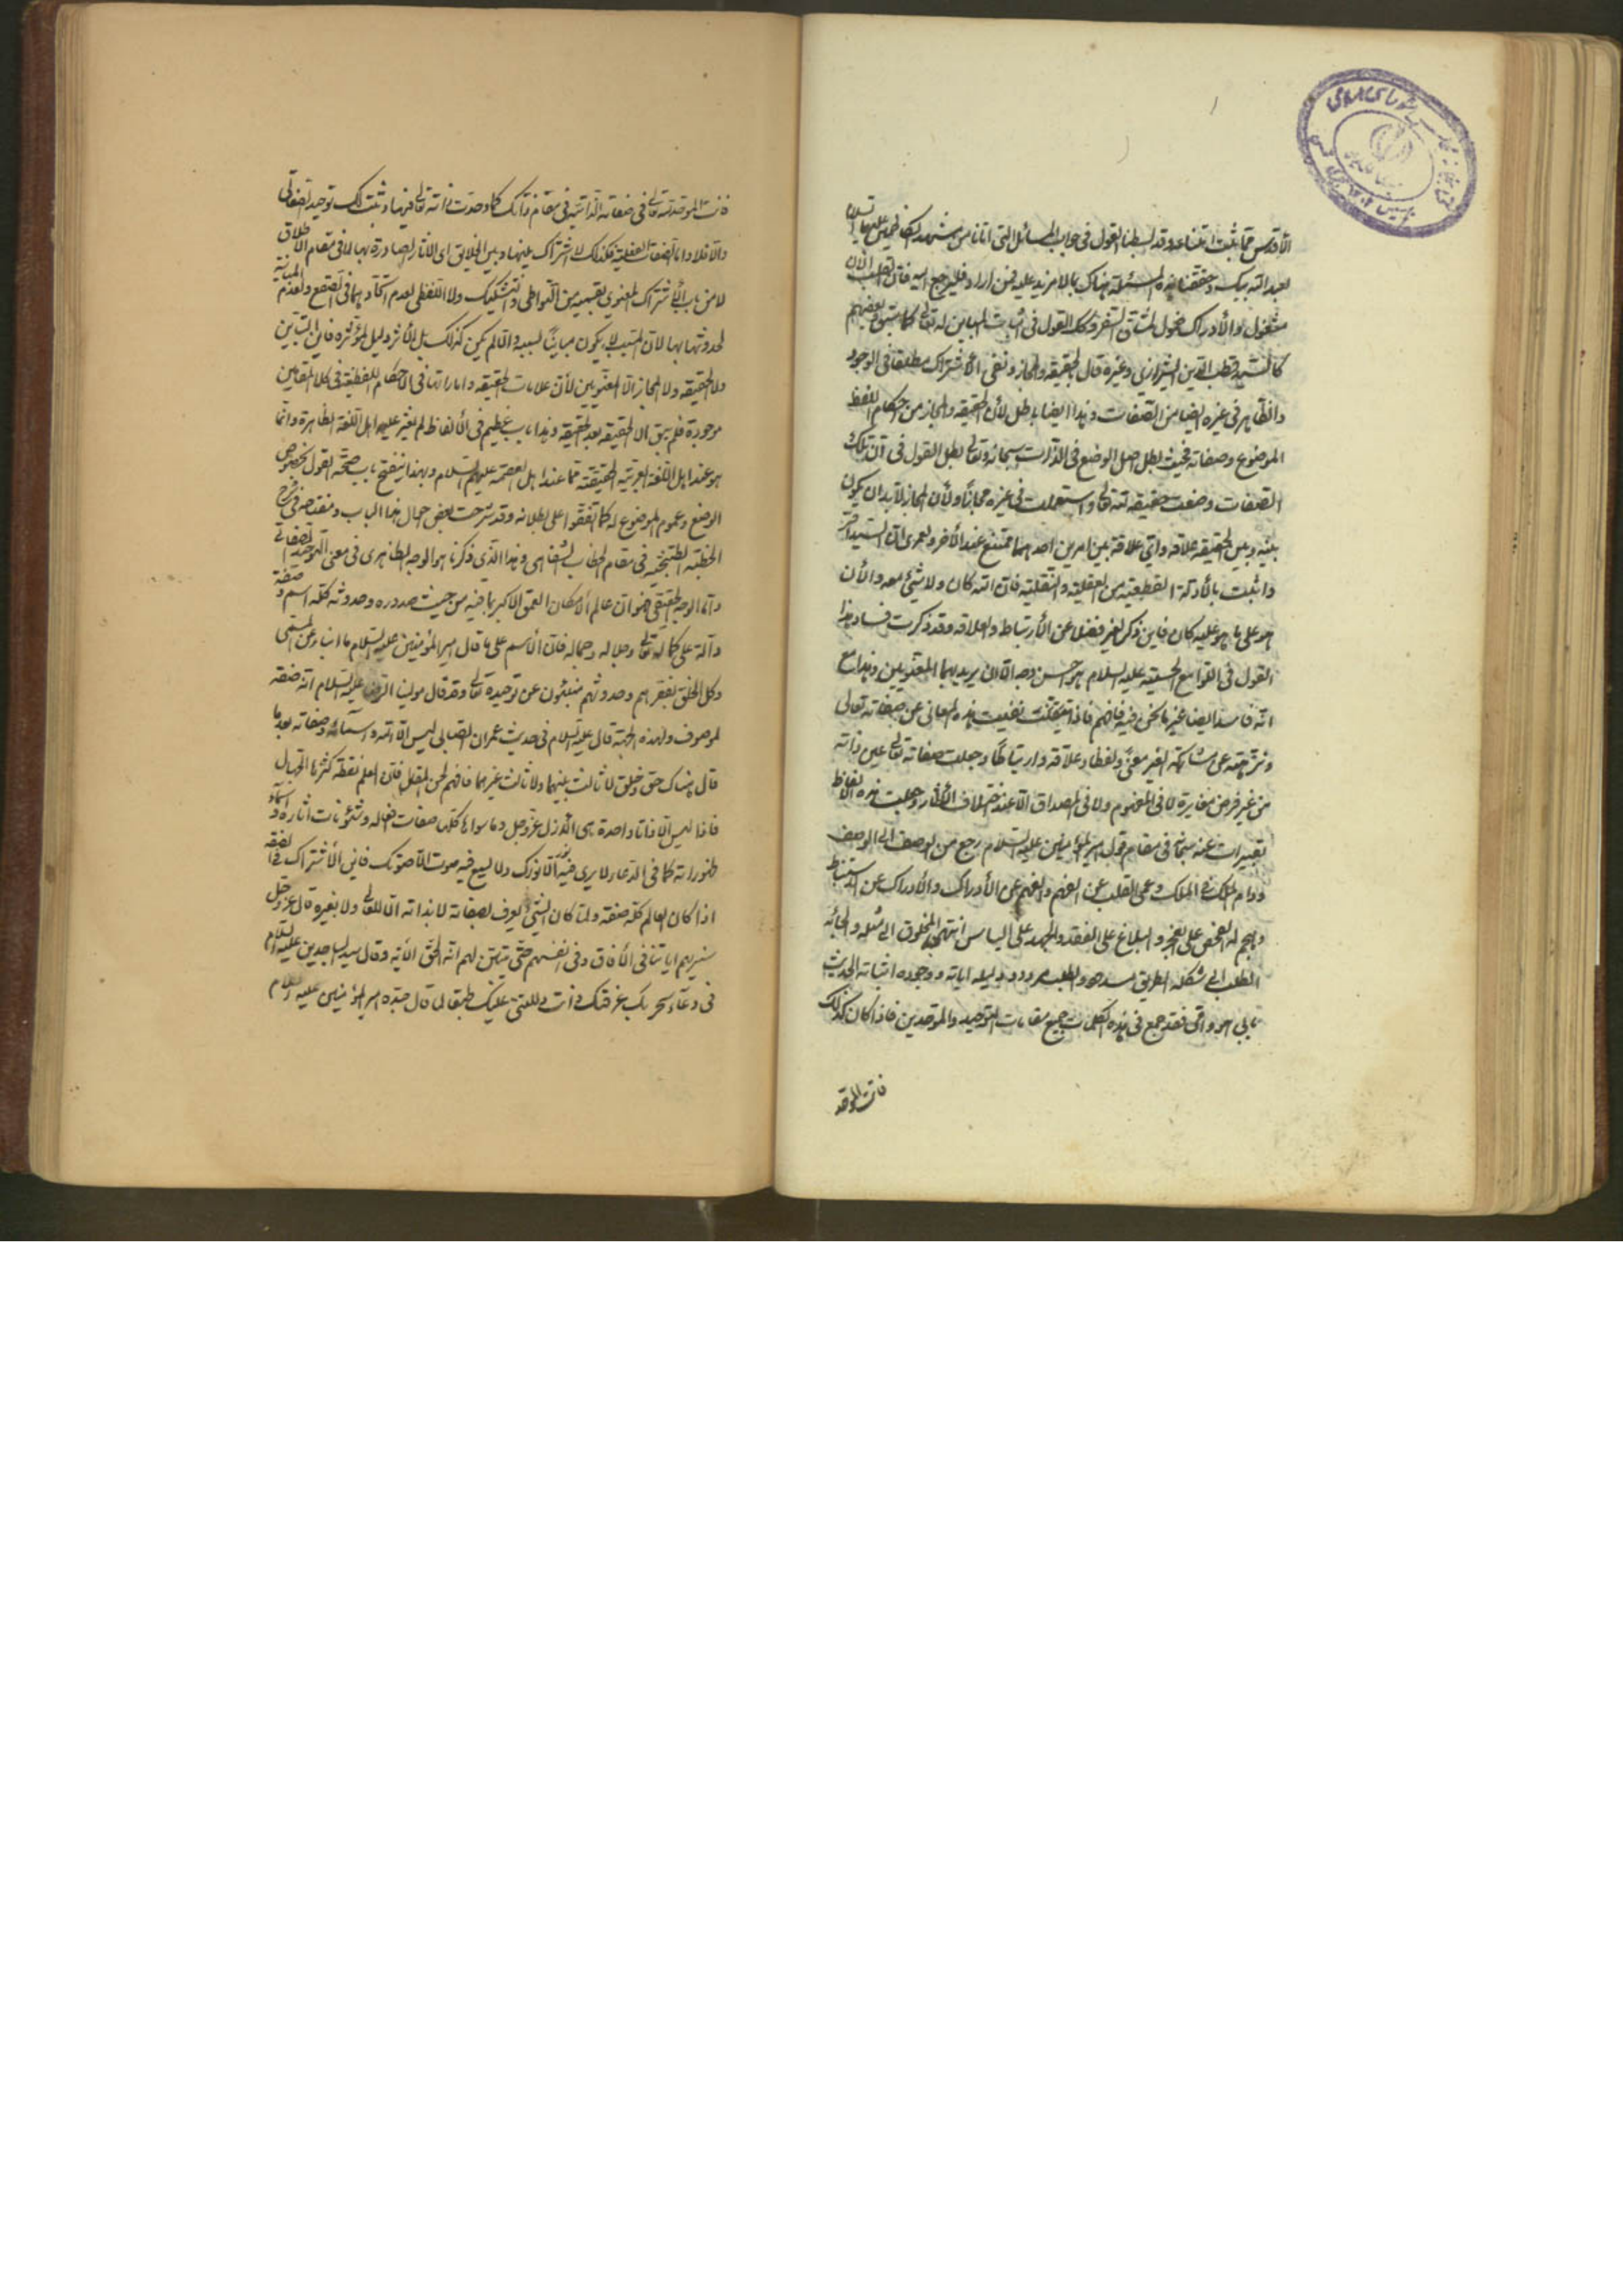 الأقدس مما يثبت اثنناء وقد بسطنا القول في جواب المسائل التي اتانا من مشهد الكاظمين عليهما السلام
لعبد الله بيك وحققنا هذه المسئلة هناك بما لا مزيد عليه فمن اراد فليرجع اليه فان القلب الان
مشغول والأدراك مخول لمشاق السفر وكك القول في اثبات المباين له تعالى كما سبق بعضهم
كالسيد قطب الدين الشيرازي وغيره قال بالحقيقة والمجاز ونفي الأشتراك مطلقا في الوجود
والظاهر في غيره ايضا من الصفات وهذا ايضا باطل لأن الحقيقة والمجاز من احكام اللفظ
الموضوع وصفاته فحيث بطل اصل الوضع في الذات سبحانه وتعالى بطل القول في ان تلك
الصفات وضعت حقيقة لله تعالى واستعملت في غيره مجازا ولأن المجاز لابد ان يكون
بينه وبين الحقيقة علاقة وأي علاقة بين امرين احدهما ممتنع عند الأخر ولعمري ان السيد اقر
واثبت بالأدلة القطعية من العقلية والنقلية فان الله كان ولا شيء معه والأن
هو على ما هو عليه كان فاين ذكر الغير فضلا عن الأرتباط والعلاقة وقد ذكرت فساد هذا
القول في اللوامع الحسينية عليه السلام بوجه حسن الا ان يريد بهما المعنويين وهذا مع
انه فاسد ايضا غير ما نحن فيه فافهم فاذا تيقنت نفيت هذه المعاني عن صفاته تعالى
ونزهته عن مشاركة الغير معنى ولفظا وعلاقة وارتباطا وجعلت صفاته تعالى عين ذاته
من غير فرض مغايرة لا في المفهوم ولا في المصداق الا عند اختلاف الأثار وجعلت هذه الالفاظ
تعبيرات عنه سبحانه في مقام قول امير المؤمنين عليه السلام رجع من الوصف الى الوصف
ودام الملك في الملك وعمي القلب عن الفهم والفهم عن الأدراك والأدراك عن الاستنباط
وهجم له الفحص على العجز والبلاغ على الفقد والجهد على الياس انتهى المخلوق الى مثله والجأه
الطلب الى شكله الطريق مسدود والطلب مردود دليله اياته ووجوده اثباته الحديث
فقد جمع في هذه الكلمات جميع مقامات التوحيد والموحدين فاذا كان كذلك
فانت الموحد
فانت الموحد لله تعالى في صفاته الذاتية في مقام ذاتك كما وحدت ذاته تعالى فيها وثبت لك توحيد الصفاتي
والا فلا واما الصفات الفعلية فكذلك لا اشتراك بينها وبين الخلايق اي الأثار الصادرة بها لا في مقام الاطلاق
لا من باب الأشتراك المعنوي بقسميه من التواطي والتشكيك ولا اللفظي لعدم اتحادهما في الصقع ولعدم المباينة
لحدوثها بها لان المسبب لا يكون مباينا لسببه والا لم يكن كذلك بل الأثر دليل لمؤثره فاين التباين
ولا الحقيقة ولا المجاز الا المعنويين لأن علامات الحقيقة واماراتها في الأحكام اللفظية في كلا المقامين
موجودة فلم يبق الا الحقيقة بعد الحقيقة وهذا باب عظيم في الألفاظ لم يعثر عليه اهل اللغة الظاهرة وانما
هو عند اهل اللغة العربية الحقيقية مما عند اهل العصمة عليهم السلام وبهذا ينفتح باب صحة القول بخصوص
الوضع وعموم الموضوع له كما اتفقوا على بطلانه وقد شرحت بعض احوال هذا الباب ومقتضيه في شرح
الخطبة الطتنجية في مقام الخطاب الشفاهي وهذا الذي ذكرنا هو الوجه الظاهري في معنى التوحيد الصفاتي
واما الوجه الحقيقي فهو ان عالم الأمكان العمق الاكبر بما فيه من حيث صدوره وحدوثه كله اسم وصفة
دالة على كماله تعالى وجلاله وجماله فان الأسم على ما قال امير المؤمنين عليه السلام ما انباء عن المسمى
وكل الخلق بفقرهم وحدوثهم منبئون عن توحيده تعالى وقد قال مولينا الرضا عليه السلام انه صفة
لموصوف ولهذه الجهة قال عليه السلام في حديث عمران الصابي ليس الا الله واسمائه وصفاته بعد ما
قال هناك حق وخلق لا ثالث بينهما ولا ثالث غيرهما فافهم لحن المقال فان العلم نقطة كثرها الجهال
فاذا ليس الا ذاتا واحدة هي الأزل عز وجل وما سواها كلها صفات افعاله وشئونات اثاره واسماء
ظهوراته كما في الدعاء لا يرى فيه نور الا نورك ولا يسمع فيه صوت الا صوتك فاين الأشتراك في الصفة
اذا كان العالم كله صفة ولما كان الشيء يعرف بصفاته لا بذاته الا الله تعالى ولا بغيره قال عز وجل
سنريهم اياتنا في الأفاق وفي انفسهم حتى يتبين لهم انه الحق الأية وقال سيد الساجدين عليه السلام
في دعاء سحر بك عرفتك وانت دللتني عليك طبقا لما قال جده امير المؤمنين عليه السلام